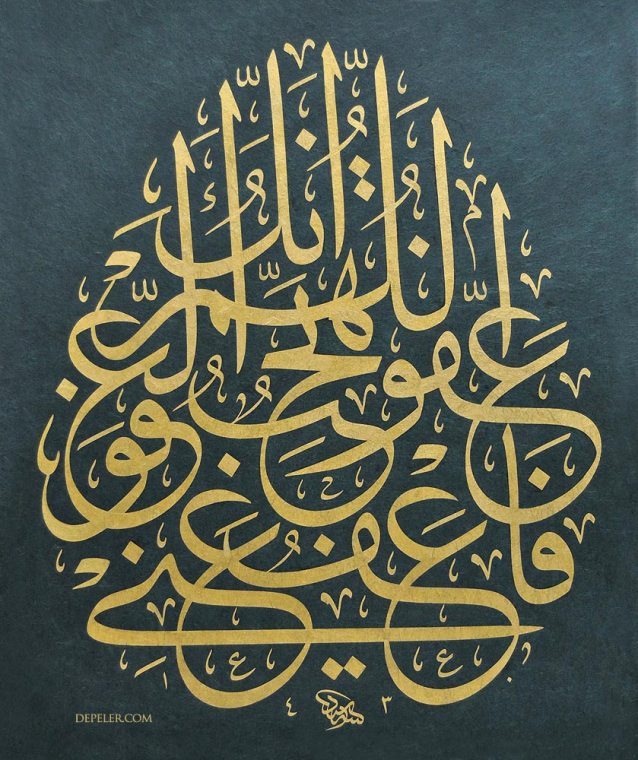 اللهم انك عفو تحب العفو فاعف عني
DEPELER.COM